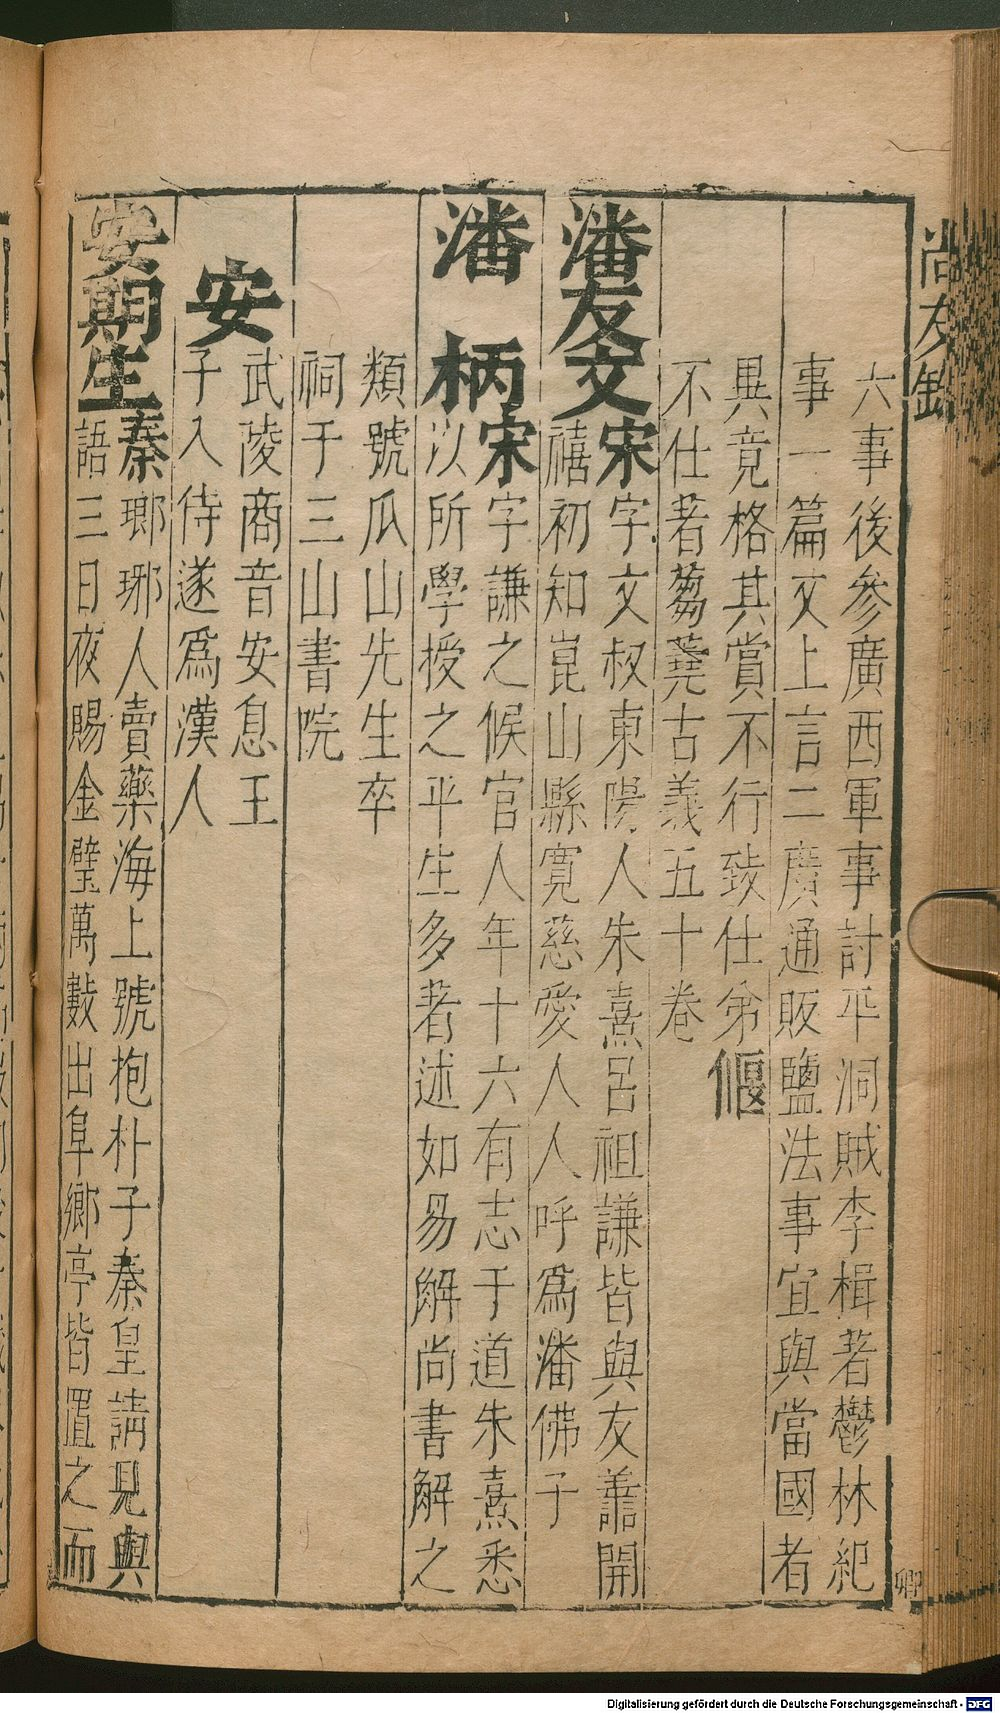 尚友錄
六事後參廣西軍事討平洞賊李楫著鬱林紀
事一篇又上言二廣通販鹽法事宜與當國者
異竟格其賞不行致仕弟偃
不仕著蒭蕘古義五十卷
潘友文宋字文叔東陽人朱熹呂祖謙皆與友善開
禧初知崑山縣寬慈愛人人呼爲潘佛子
潘柄宋字謙之候官人年十六有志于道朱熹悉
以所學授之平生多著述如易解尚書解之
類號瓜山先生卒
祠于三山書院
安
武陵商音安息王
子入侍遂爲漢人
安期生秦瑯琊人賣藥海上號抱朴子秦皇請見與
語三日夜賜金璧萬數出阜鄉亭皆置之而
Digitalisierung gefördert durch die Deutsche Forschungsgemeinschaft - DFG